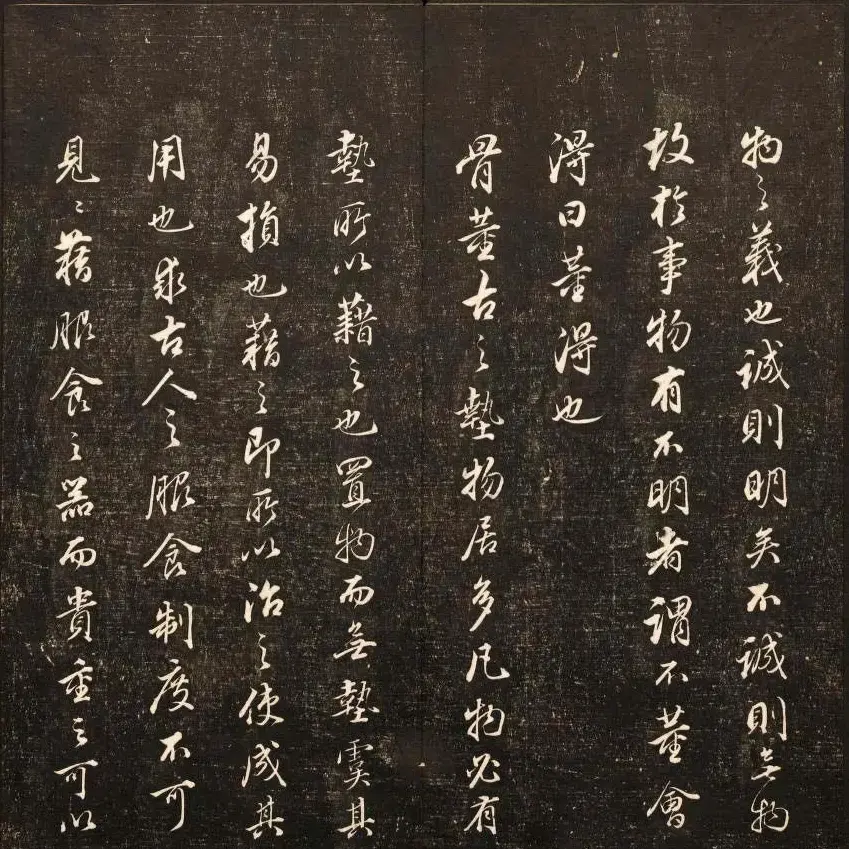 物之義也誠則明矣不誠則無物
故於事物有不明者謂不董會
得曰董得也
骨董古之墊物居多凡物必有
墊所以藉之也置物而無墊虞其
易損也藉之即所以治之使成其
用也求古人之服食制度不可
見見藉服食之器而貴重之可以